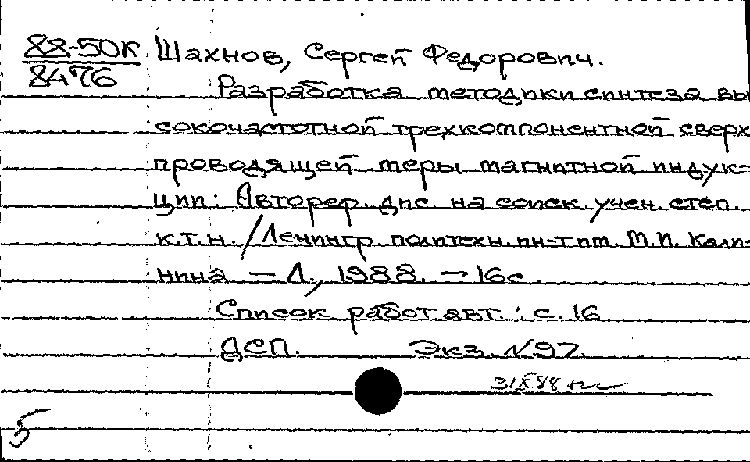 88-50К Шахнов, Сергей Федорович.
8476 Разработка методики синтеза вы
сокочастотной трехкомпонентной сверх
проводящей меры магнитной индук-
ции: Автореф. дис. на соиск. учен. степ.
к.т.н. / Ленингр. политехн. ин-т им. М.И. Кали-
нина. — Л., 1988. — 16с.
Список работ авт.: с. 16
ДСП. Экз. N97.
5